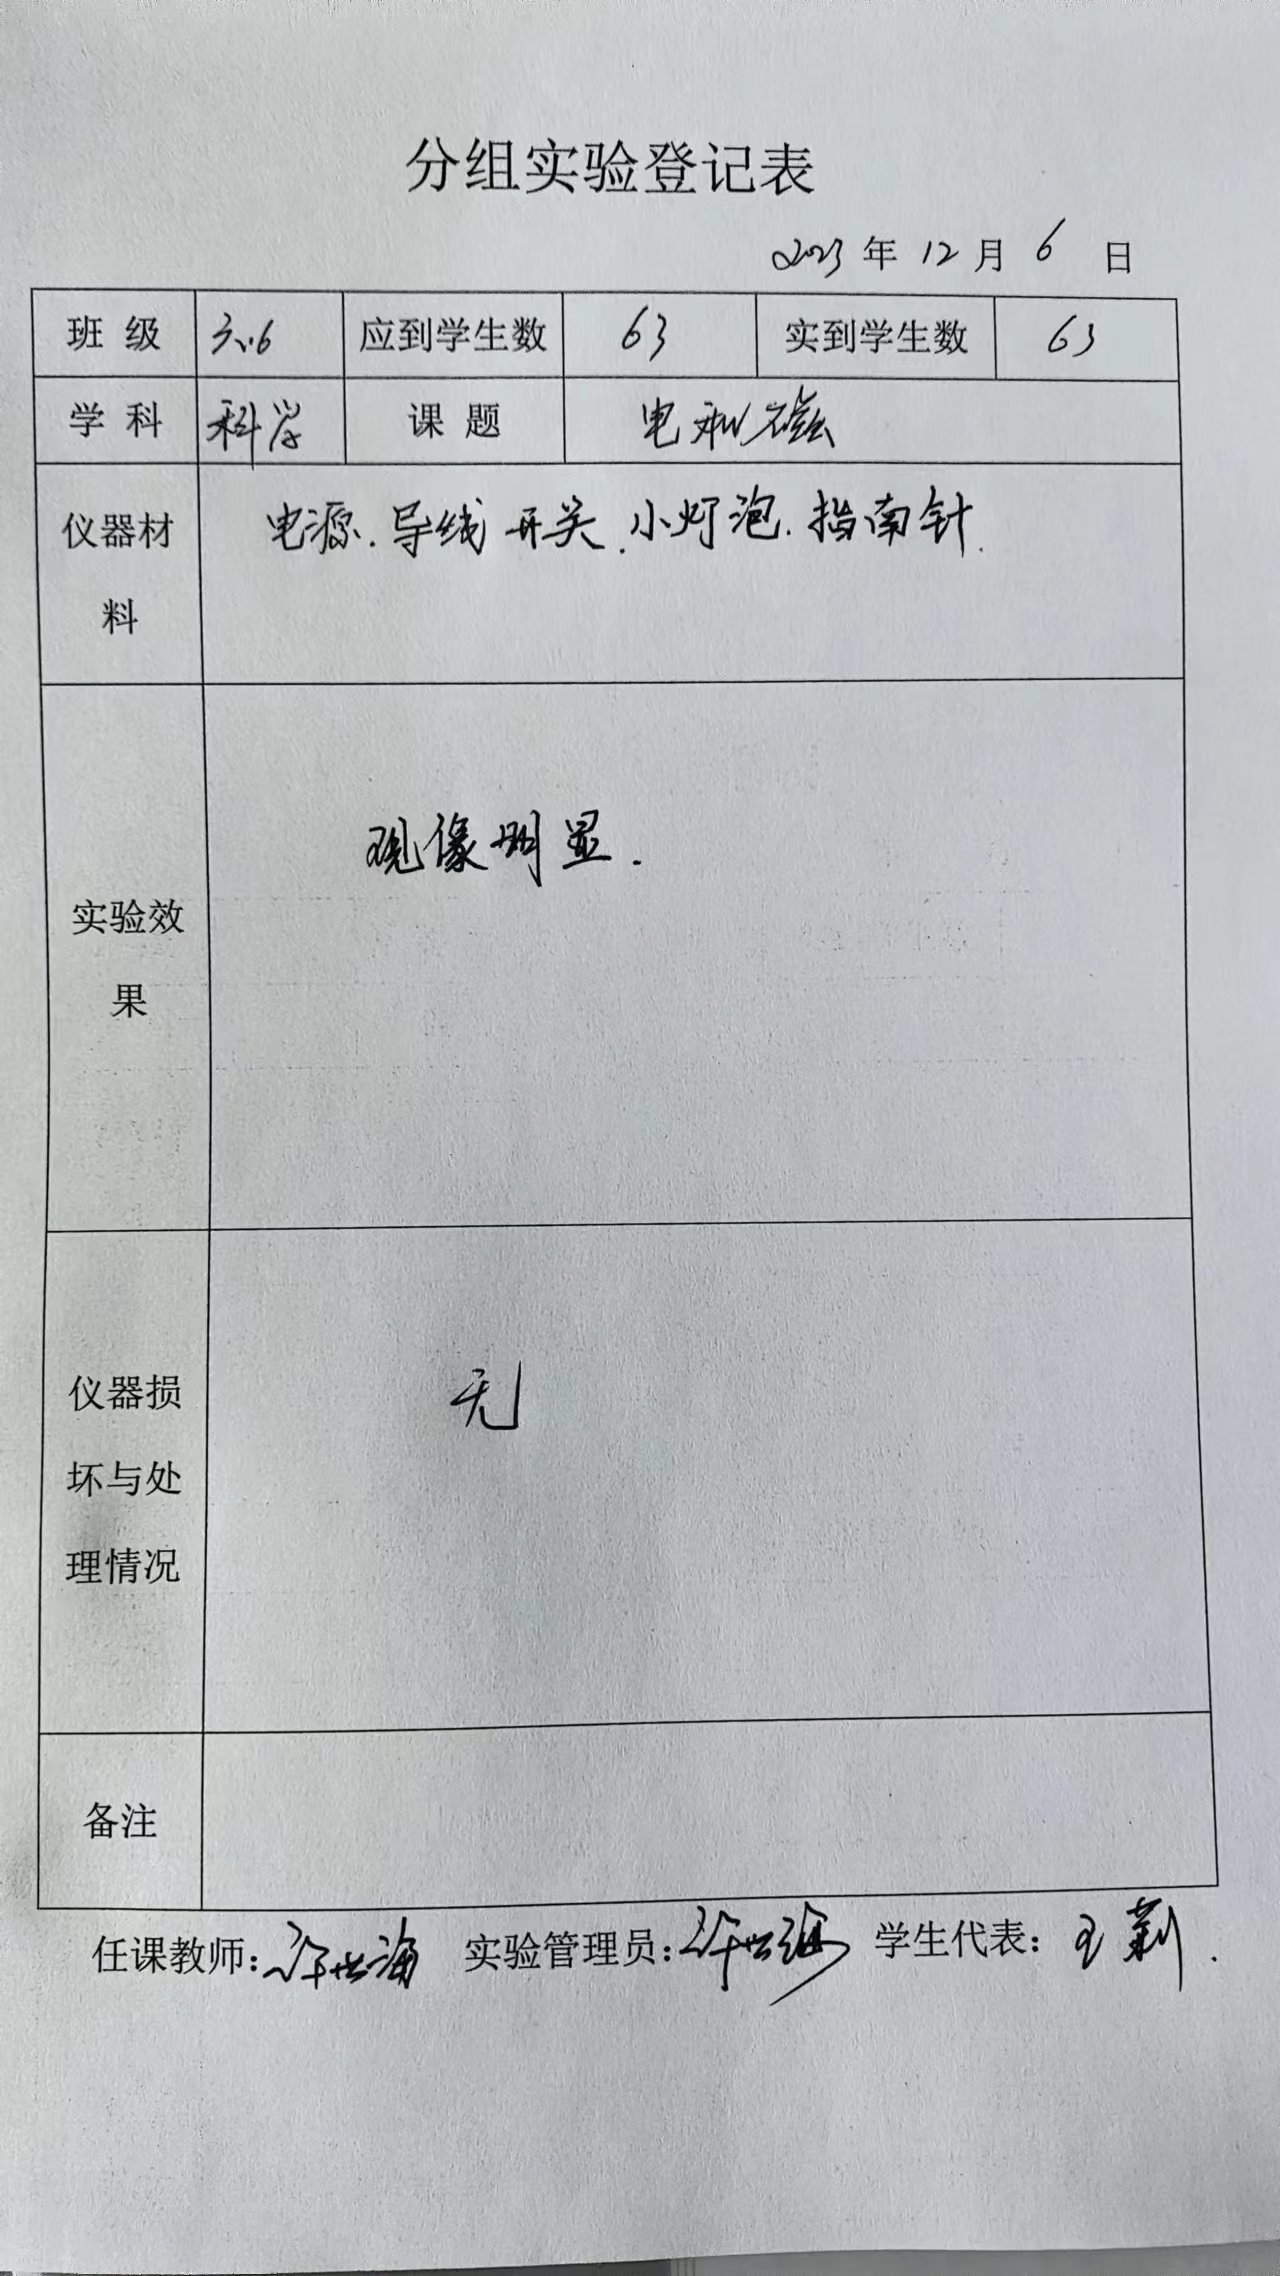 分组实验登记表
2023年12月6日
班级 六.6 应到学生数 63 实到学生数 63
学科 科学 课题 电和磁
仪器材料 电源.导线 开关.小灯泡.指南针.
实验效果 现像明显.
仪器损坏与处理情况 无
备注
任课教师:许世海 实验管理员:许世海 学生代表:王莉.